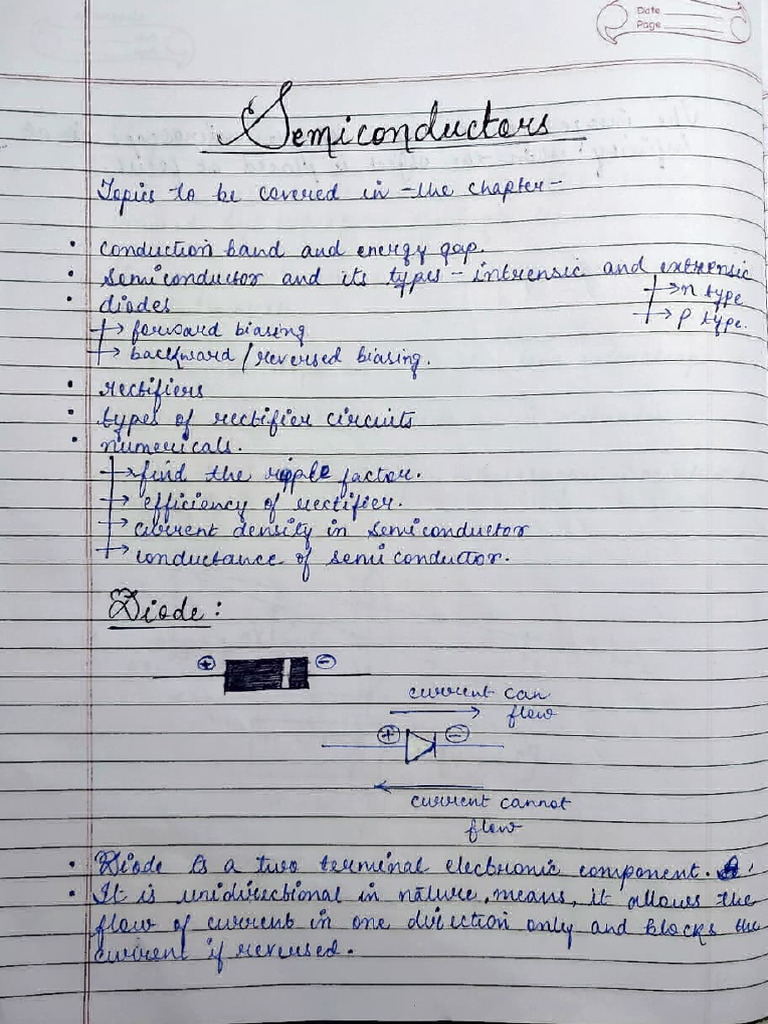 Date
Page
Semiconductors
Topics to be covered in the chapter-
• conduction band and energy gap.
• semiconductor and its types - intrensic and extrensic
→ n type
→ p type.
• diodes
→ forward biasing
→ backward / reversed biasing.
• rectifiers
• types of rectifier circuits
• numericals.
→ find the ripple factor.
→ efficiency of rectifier.
→ current density in semiconductor
→ conductance of semi conductor.
Diode :
+ -
current can
flow
+ -
current cannot
flow
• Diode is a two terminal electronic component.
• It is unidirectional in nature, means, it allows the
flow of current in one direction only and blocks the
current if reversed.